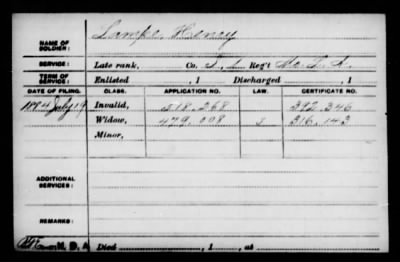 NAME OF SOLDIER: Lampe, Henry
SERVICE: Late rank, Co. I, 1 Reg't Mo. L. A.
TERM OF SERVICE: Enlisted , 1 Discharged , 1
DATE OF FILING. CLASS. APPLICATION NO. LAW. CERTIFICATE NO.
1884 July 19 Invalid, 518.268 392.346
Widow, 479.008 316.143
Minor,
ADDITIONAL SERVICES:
REMARKS:
Died , 1 , at